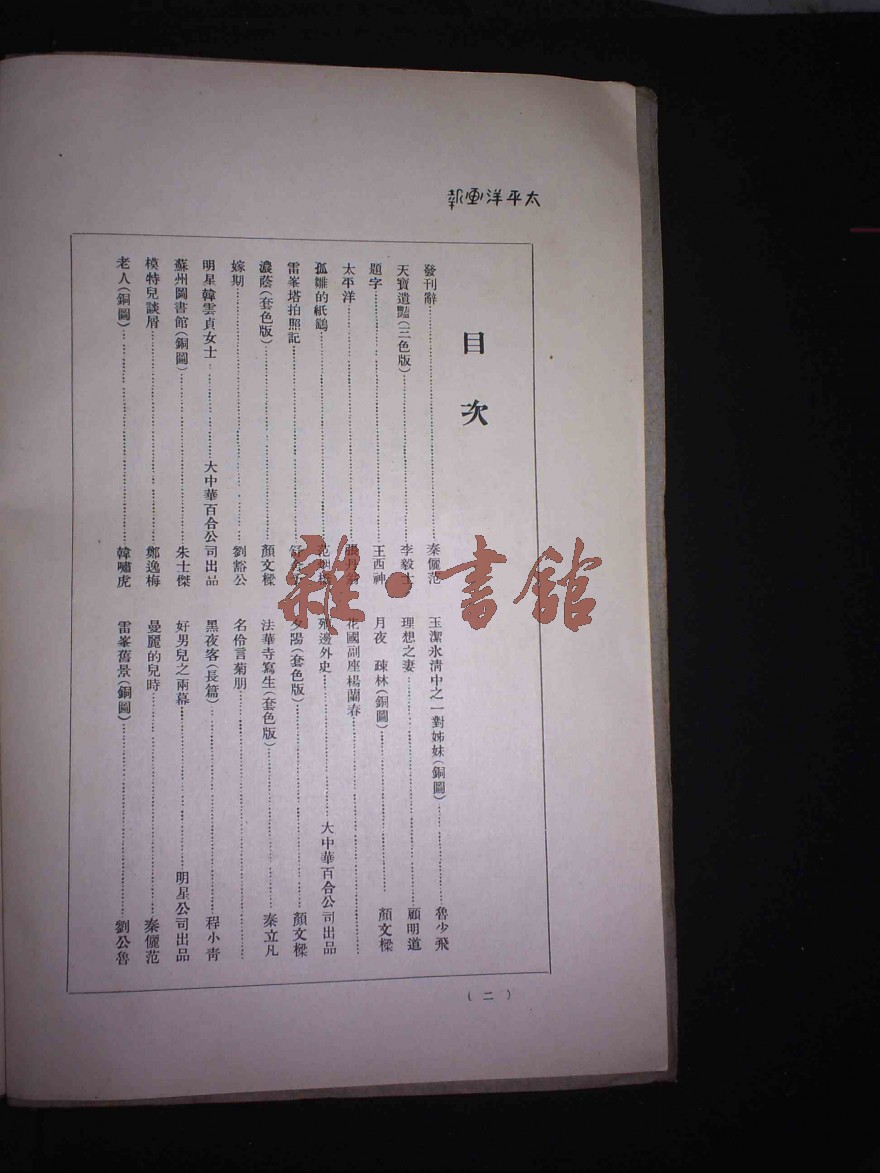 太平洋画報
目次
發刊辭 秦儷范
天寶遺豔(三色版) 李毅士
題字 王西神
太平洋 張丹
孤雛的紙鷂 范
雷峯塔拍照記 舒
濃蔭(套色版) 顏文樑
嫁期 劉豁公
明星韓雲貞女士 大中華百合公司出品
蘇州圖書館(銅圖) 朱士傑
模特兒談屑 鄭逸梅
老人(銅圖) 韓嘯虎
玉潔氷清中之一對姊妹(銅圖) 魯少飛
理想之妻 顧明道
月夜 疎林(銅圖) 顏文樑
花國副座楊蘭春
邊外史 大中華百合公司出品
夕陽(套色版) 顏文樑
法華寺寫生(套色版) 秦立凡
名伶言菊朋
黑夜客(長篇) 程小青
好男兒之兩幕 明星公司出品
曼麗的兒時 秦儷范
雷峯舊景(銅圖) 劉公魯
(二)
雜·書館